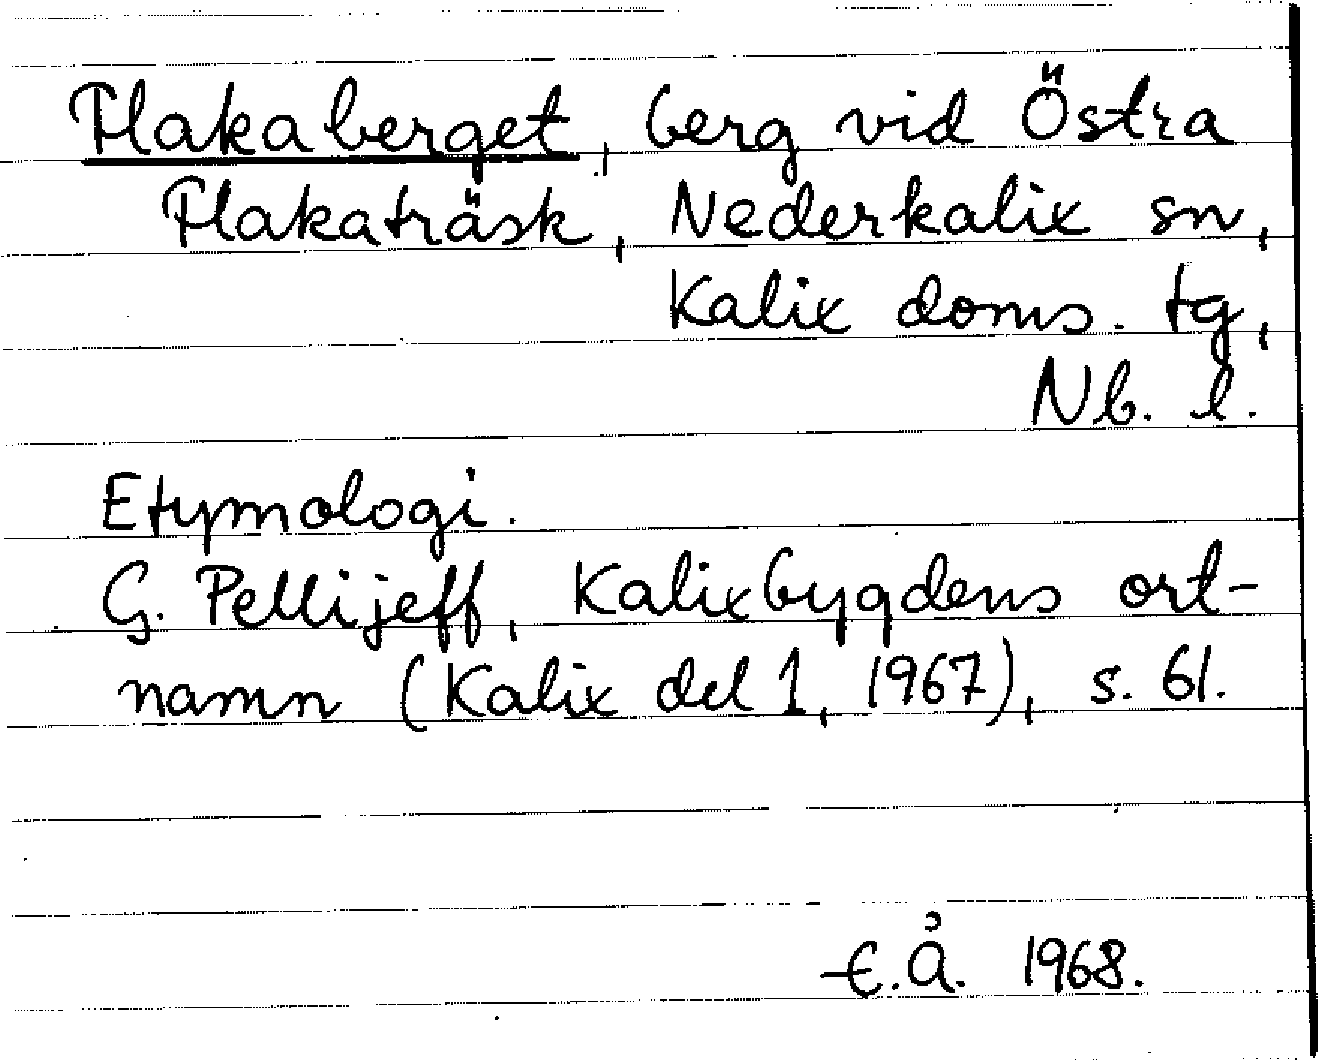 Flakaberget, berg vid Östra
Flakaträsk, Nederkalix sn,
Kalix doms. tg,
Nb. l.
Etymologi.
G. Pellijeff, Kalixbygdens ort-
namn (Kalix del 1, 1967), s. 61.
E.Å. 1968.